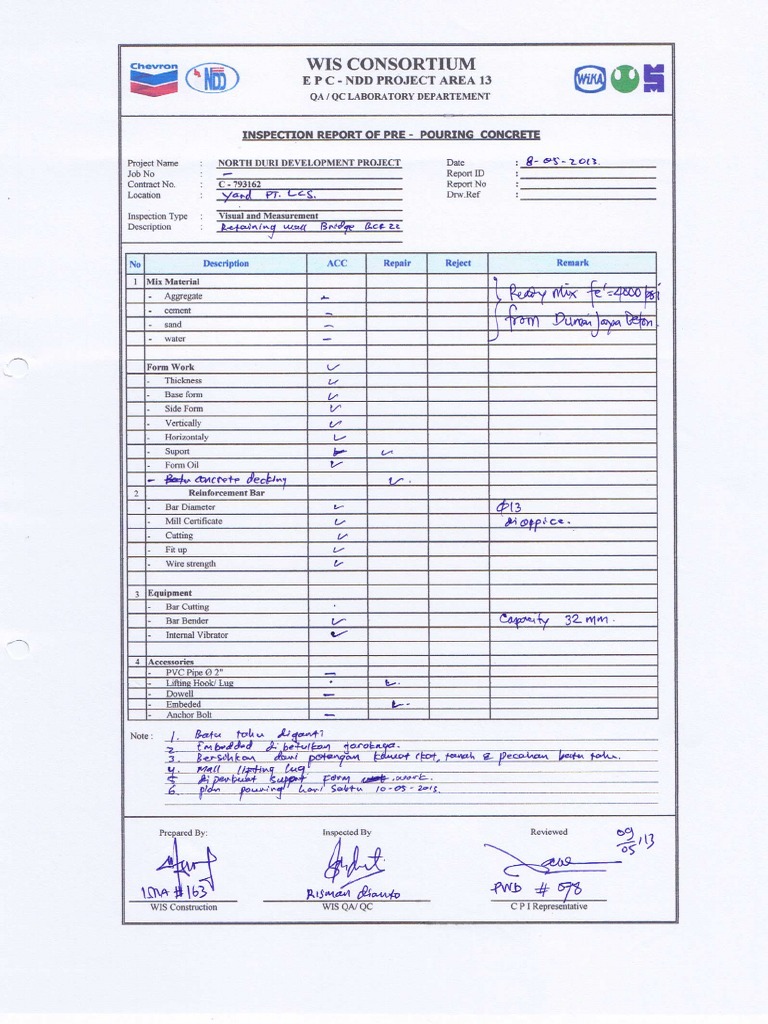 Chevron
NDD
WIS CONSORTIUM
E P C - NDD PROJECT AREA 13
QA / QC LABORATORY DEPARTEMENT
WIKA
INSPECTION REPORT OF PRE - POURING CONCRETE
Project Name : NORTH DURI DEVELOPMENT PROJECT Date : 8-05-2013.
Job No : – Report ID :
Contract No. : C - 793162 Report No :
Location : Yard PT. LCS. Drw.Ref :
Inspection Type : Visual and Measurement
Description : Retaining wall Bridge BCR 22
No Description ACC Repair Reject Remark
1 Mix Material
- Aggregate – Ready Mix fc'=4000 psi
- cement –
- sand – from Dumai Jaya Beton.
- water –
Form Work ✓
- Thickness ✓
- Base form ✓
- Side Form ✓
- Vertically ✓
- Horizontaly ✓
- Suport ✓
- Form Oil ✓
- concrete decking ✓.
2 Reinforcement Bar
- Bar Diameter ✓ Φ13
- Mill Certificate ✓ dioffice.
- Cutting ✓
- Fit up ✓
- Wire strength ✓
3 Equipment
- Bar Cutting
- Bar Bender ✓ Capacity 32 mm.
- Internal Vibrator ✓
4 Accessories
- PVC Pipe Ø 2" –
- Lifting Hook/ Lug ✓.
- Dowell –
- Embeded ✓.
- Anchor Bolt –
Note : 1. Batu tahu diganti
2. Embedded dibetulkan jaraknya.
3. Bersihkan dari potongan kawat ikat, tanah & pecahan batu tahu.
4. Mall lifting lug
5. diperkuat support form work.
6. plan pouring hari sabtu 10-05-2013.
Prepared By: Inspected By Reviewed 09/05/13
ISRA # 163 Risman dianto PWD # 078
WIS Construction WIS QA/ QC C P I Representative